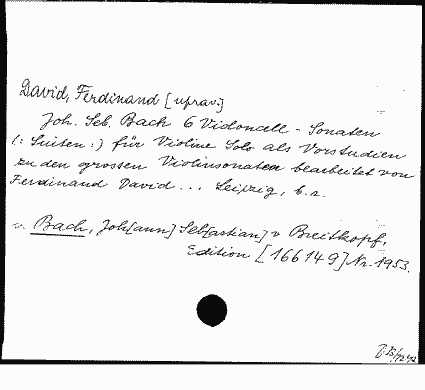 David, Ferdinand [uprav.]
Joh. Seb. Bach 6 Violoncell - Sonaten
(: Suiten :) für Violine Solo als Vorstudien
zu den grossen Violinsonaten bearbeitet von
Ferdinand David ... Leipzig, b.r.
v. Bach, Joh[ann] Seb[astian] v Breitkopf,
Edition [166149] Nr. 1953.